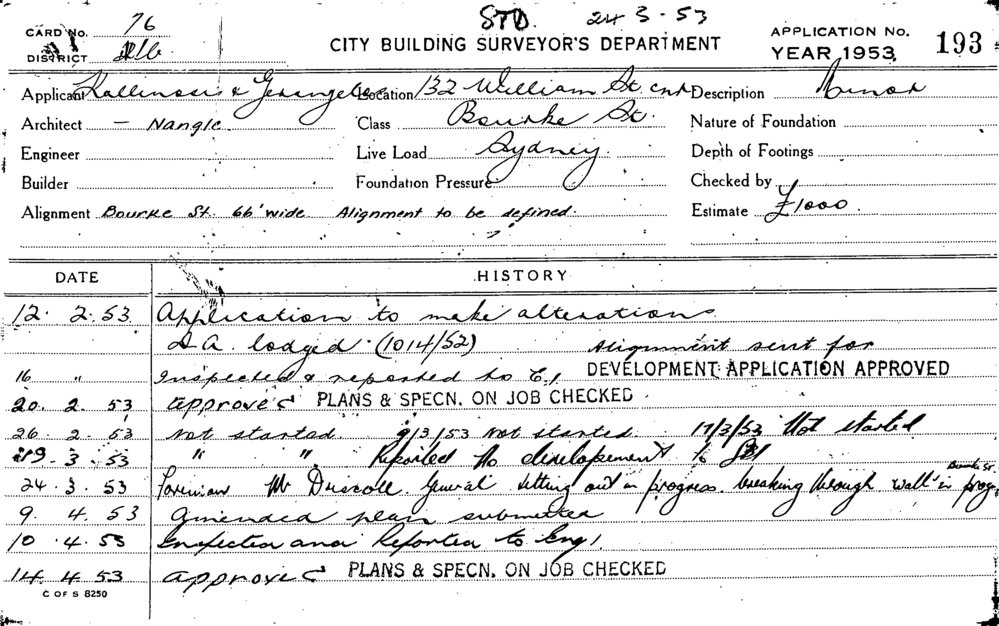 CARD No. 76
STD. 24 3-53
APPLICATION No.
DISTRICT
CITY BUILDING SURVEYOR'S DEPARTMENT
YEAR 1953. 193
Applicant & Location 132 William St. cnr Description Minor
Architect - Nangle. Class Bourke St. Nature of Foundation
Engineer Live Load Sydney. Depth of Footings
Builder Foundation Pressure Checked by
Alignment Bourke St. 66' wide. Alignment to be defined. Estimate £1000.
DATE HISTORY
12. 2. 53 Application to make alterations
D.A. lodged (1014/52) Alignment sent for
16 " Inspected & reported to E.1. DEVELOPMENT APPLICATION APPROVED
20. 2. 53 Approved PLANS & SPECN. ON JOB CHECKED
26. 2. 53 Not started. 9/3/53 Not started. 17/3/53 Not started
19. 3. 53 " " Reported no developement to
24. 3. 53 Foreman Mr Driscoll. General setting out in progress. breaking through Bourke St. wall in prog.
9. 4. 53 Amended plan submitted
10. 4. 53 Inspected and Reported to Eng 1.
14. 4. 53 Approved PLANS & SPECN. ON JOB CHECKED
C OF S 8250